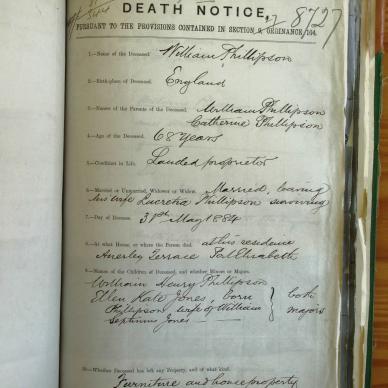 8727
DEATH NOTICE,
PURSUANT TO THE PROVISIONS CONTAINED IN SECTION 9, ORDINANCE 104.
1.—Name of the Deceased William Phillipson
2.—Birthplace of Deceased, England
3.—Names of the Parents of the Deceased, William Phillipson
Catherine Phillipson
4.—Age of the Deceased, 68 Years
5.—Condition in Life, Landed proprietor
6.—Married or Unmarried, Widower or Widow, Married, leaving
his wife Lucretia Phillipson surviving
7.—Day of Decease, 31st May 1884
8.—At what House, or where the Person died, at his residence
Anerley Terrace Pt Elizabeth
9.—Names of the Children of Deceased, and whether Minors or Majors.
William Henry Phillipson
Ellen Kate Jones, born
Phillipson wife of William
Septimus Jones
both
majors
10.—Whether Deceased has left any Property, and of what kind.
Furniture and house property